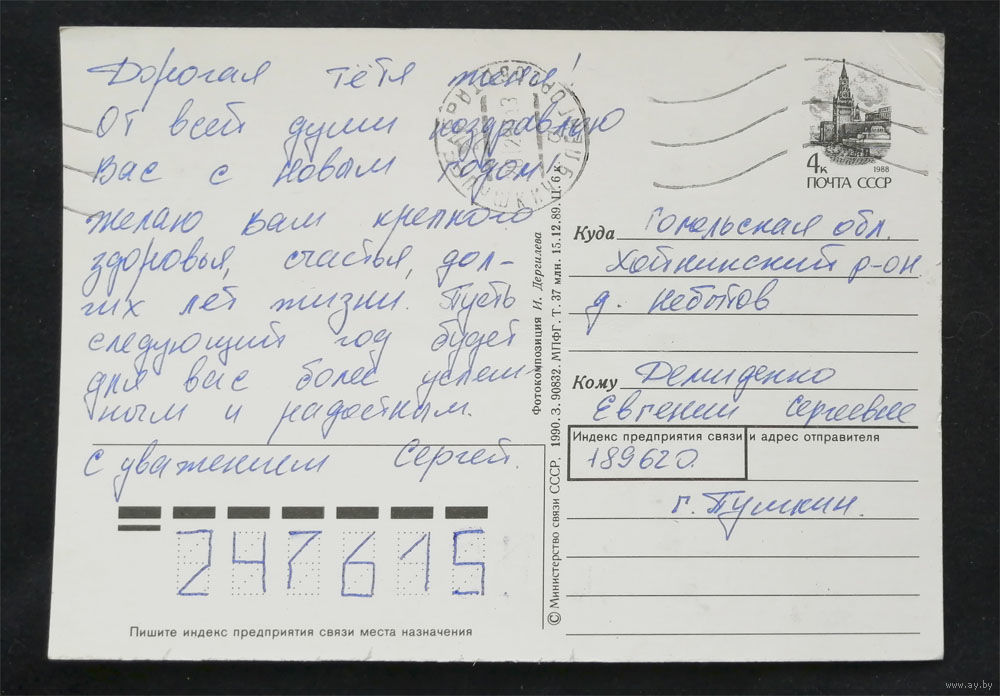 Дорогая тётя Женя!
От всей души поздравляю
Вас с Новым годом!
Желаю Вам крепкого
здоровья, счастья, дол-
гих лет жизни. Пусть
следующий год будет
для вас более успеш-
ным и радостным.
С уважением Сергей.
247615
Пишите индекс предприятия связи места назначения
© Министерство связи СССР. 1990. З. 90832. МПФГ. Т. 37 млн. 15.12.89. Ц. 6 к.
Фотокомпозиция И. Дергилева
4к
1988
ПОЧТА СССР
Куда Гомельская обл.
Хойникский р-он
д. Небытов
Кому Демиденко
Евгении Сергеевне
Индекс предприятия связи и адрес отправителя
189620.
г. Пушкин.
www.ay.by